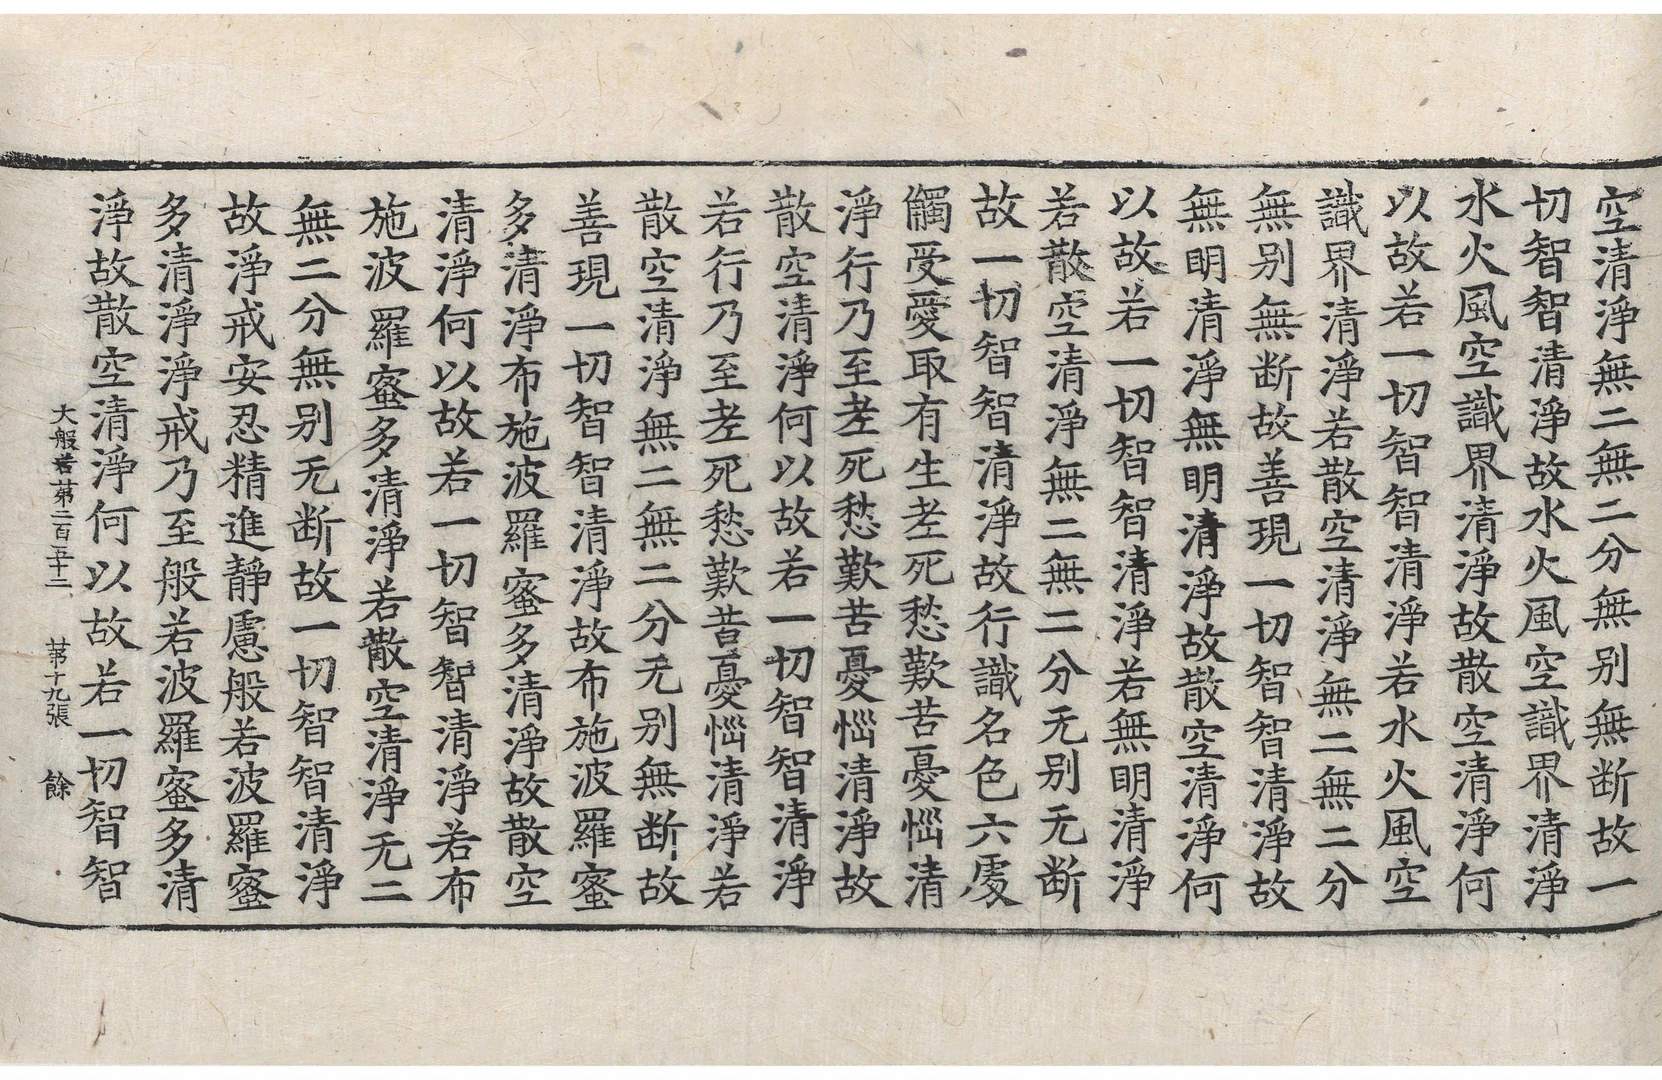 空清淨無二無二分無別無断故一
切智智清淨故水火風空識界清淨
水火風空識界清淨故散空清淨何
以故若一切智智清淨若水火風空
識界清淨若散空清淨無二無二分
無別無断故善現一切智智清淨故
無明清淨無明清淨故散空清淨何
以故若一切智智清淨若無明清淨
若散空清淨無二無二分无別无断
故一切智智清淨故行識名色六處
觸受愛取有生老死愁歎苦憂惱清
淨行乃至老死愁歎苦憂惱清淨故
散空清淨何以故若一切智智清淨
若行乃至老死愁歎苦憂惱清淨若
散空清淨無二無二分无別無断故
善現一切智智清淨故布施波羅蜜
多清淨布施波羅蜜多清淨故散空
清淨何以故若一切智智清淨若布
施波羅蜜多清淨若散空清淨无二
無二分無別无断故一切智智清淨
故淨戒安忍精進靜慮般若波羅蜜
多清淨淨戒乃至般若波羅蜜多清
淨故散空清淨何以故若一切智智
大般若第二百五十二 第十九張 餘